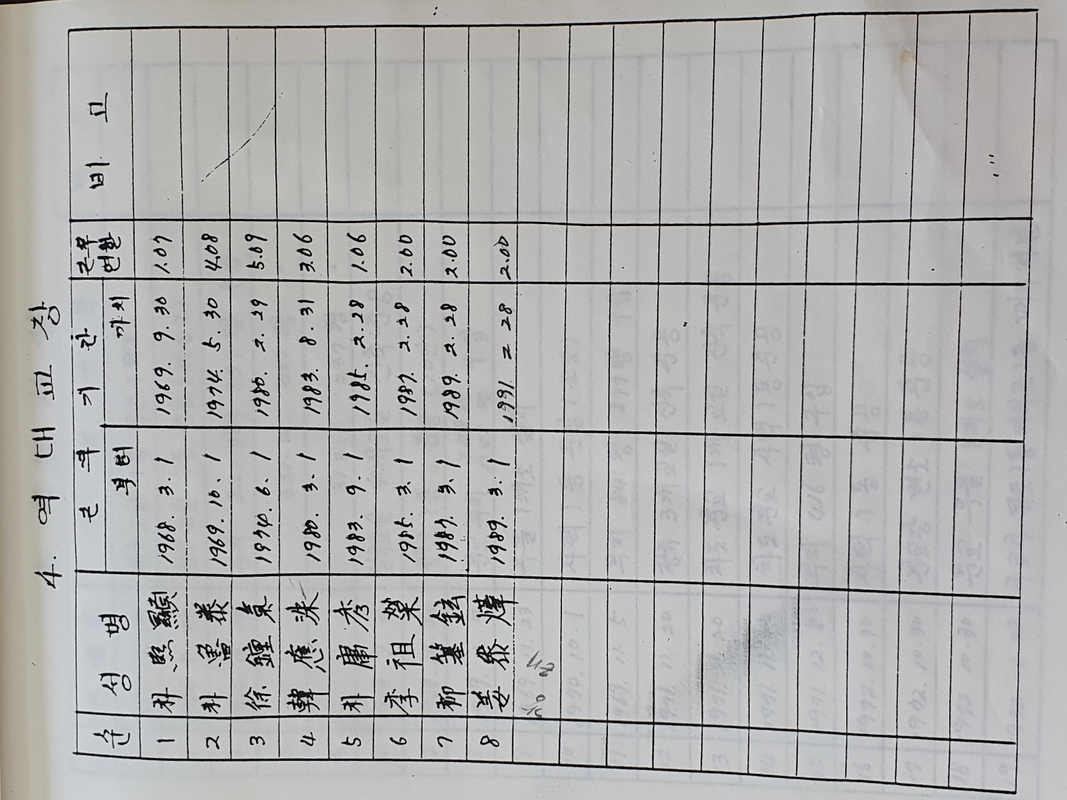 4. 역대교장
순 성명 근무기간 근무연월 비고
부터 까지
1 朴熙顯 1968 3. 1 1969. 9. 30 1.07
2 朴魯泰 1969. 10. 1 1974. 5. 30 4.08
3 徐鍾 1974. 6. 1 1980. 2. 29 5.09
4 韓應洙 1980. 3. 1 1983. 8. 31 3.06
5 朴庸秀 1983. 9. 1 1985. 2. 28 1.06
6 李祖榮 1985. 3. 1 1987. 2. 28 2.00
7 柳鉉 1987. 3. 1 1989. 2. 28 2.00
8 姜泰煒 1989. 3. 1 1991. 2 28 2.00